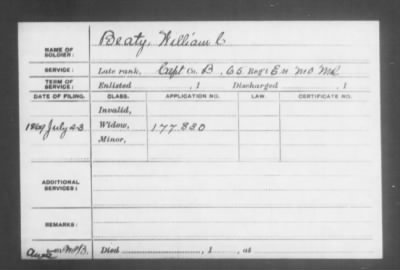 NAME OF SOLDIER: Beaty, William C
SERVICE: Late rank, Capt Co. B, 65 Reg't E M Mo Ml
TERM OF SERVICE: Enlisted , 1 Discharged , 1
DATE OF FILING. CLASS. APPLICATION NO. LAW. CERTIFICATE NO.
Invalid,
1869 July 23 Widow, 177.830
Minor,
ADDITIONAL SERVICES:
REMARKS:
Died , 1 , at